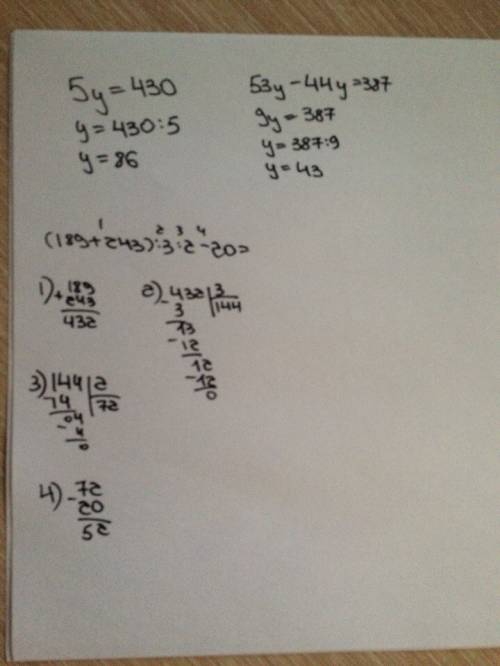 5y = 430
y = 430:5
y = 86
53y - 44y = 387
9y = 387
y = 387:9
y = 43
1 2 3 4
(189+243):3:2-20=
1) + 189
243
432
2) - 432 | 3
3 144
13
- 12
12
- 12
0
3) 144 | 2
14 72
- 04
4
0
4) - 72
20
52